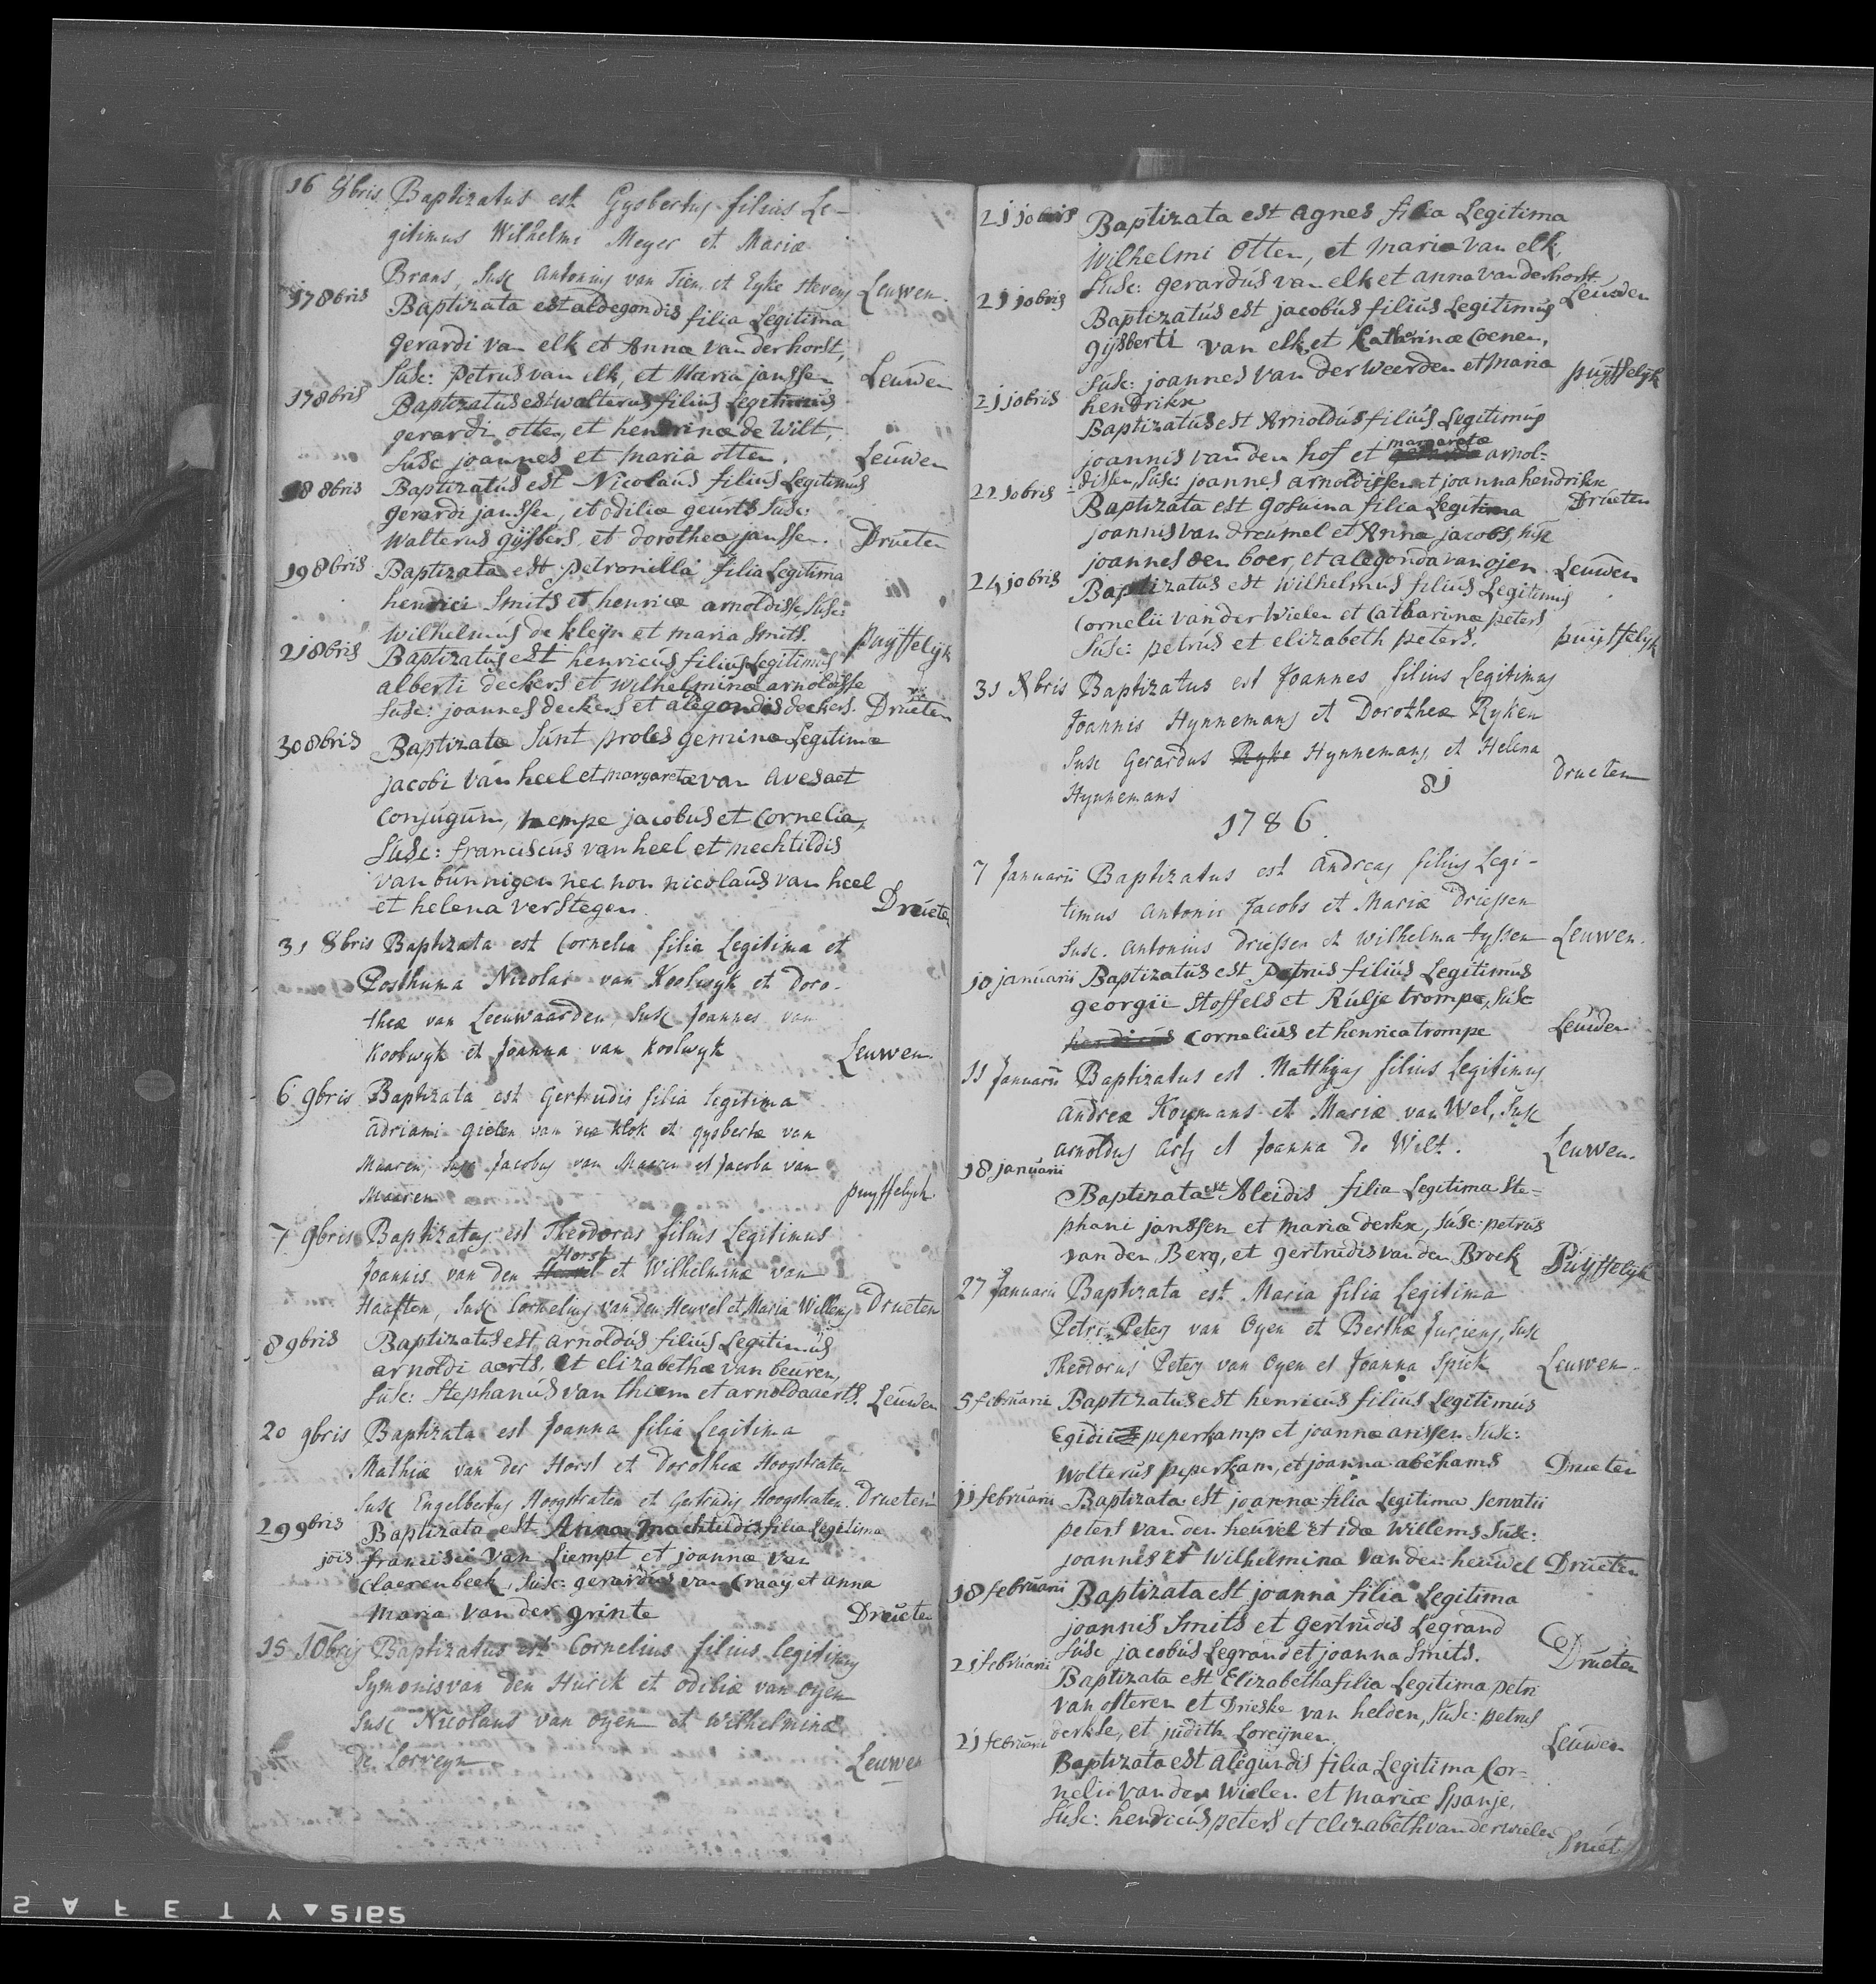 16 8bris Baptizatus est Gysbertus filius Le-
gitimus Wilhelmi Meyer et Mariæ
Brans, Susc Antonius van Tien et Eyke Stevens Leuwen.
17 8bris Baptizata est aldegondis filia Legitima
gerardi van elk et Annæ van der horst,
Susc: petrus van elk, et Maria janssen Leuwen
17 8bris Baptizatus est walterus filius Legitimus
gerardi otten, et hendrinæ de Wilt,
Susc joannes et maria otten. Leuwen
18 8bris Baptizatus est Nicolaus filius Legitimus
gerardi janssen, et odiliæ geurts Susc:
Walterus gijsbers et dorothea janssen. Drueten
19 8bris Baptizata est petronilla filia Legitima
henrici Smits et henricæ arnoldisse, Susc:
Wilhelmus de kleijn et maria Smits. puijffelijk
21 8bris Baptizatus est henricus filius Legitimus
alberti deckers et wilhelminæ arnoldisse
Susc: joannes deckers et alegondis deckers. Drueten
30 8bris Baptizatæ Sunt proles geminæ Legitimæ
jacobi van heel et margaretæ van avesaet
Conjugum, nempe jacobus et Cornelia,
Susc: franciscus van heel et mechtildis
van bunnigen nec non nicolaus van heel
et helena verstegen Drueten
31 8bris Baptizata est Cornelia filia Legitima et
Posthuma Nicolai van Koolwyk et Doro-
theæ van Leeuwaarden, Susc Joannes van
Koolwyk et Joanna van Koolwyk Leuwen.
6 9bris Baptizata est Gertrudis filia legitima
adriani gielen van der Klok et gysbertæ van
Maaren, Susc Jacobus van Maaren et Jacoba van
Maaren puyffelyck
7 9bris Baptizatus est Theodorus filius Legitimus
Horst
Joannis van den et Wilhelminæ van
Haaften, Susc Cornelius van den Heuvel et Maria Willems Drueten
8 9bris Baptizatus est arnoldus filius Legitimus
arnoldi aerts, et elizabethæ van beuren,
Susc: Stephanus van thiem et arnolda aerts. Leuwen
20 9bris Baptizata est Joanna filia Legitima
Mathiæ van der Horst et Dorotheæ Hoogstraten
Susc Engelbertus Hoogstraten et Gertrudis Hoogstraten. Drueten
29 9bris Baptizata est Anna Machtildis filia Legitima
jois francisci van Liempt et joannæ van
Claerenbeek, Susc: gerardus van Craaij et anna
Maria van der grinte Drueten
15 10bris Baptizatus est Cornelius filius legitimus
Symonis van den Hurck et odiliæ van oyen
Susc Nicolaus van oyen et Wilhelmina
de Lorreyn Leuwen
21 10bris Baptizata est agnes filia Legitima
Wilhelmi Otten, et mariæ van elk,
Susc: gerardus van elk et anna van der horst Leuwen
21 10bris Baptizatus est jacobus filius Legitimus
gijsberti van elk, et Catharinæ Coenen,
Susc: joannes van der weerden et maria puijffelijk
hendrikx
21 10bris Baptizatus est Arnoldus filius Legitimus
margaretæ
joannis van den hof et arnol-
dissen, Susc: joannes arnoldissen et joanna hendrikx Drueten
22 10bris Baptizata est gosuina filia Legitima
joannis van dreumel et Annæ jacobs, susc
joannes den boer, et alegonda van ojen Leuwen
24 10bris Baptizatus est Wilhelmus filius Legitimus
Cornelii van der Wielen et Catharinæ peters
Susc: petrus et elizabeth peters. puijffelijk
31 Xbris Baptizatus est Joannes filius Legitimus
Joannis Hynnemans et Dorotheæ Ryken
Susc Gerardus Ryke Hynnemans, et Helena
Hynnemans Drueten
81
1786.
7 Januarii Baptizatus est Andreas filius Legi-
timus Antonii Jacobs et Mariæ Driessen
Susc. Antonius Driessen et Wilhelma tyssen Leuwen.
10 januarii Baptizatus est petrus filius Legitimus
georgii Stoffels et Rulje trompe, Susc
Cornelius et henrica trompe Leuwen
11 Januarii Baptizatus est Matthyas filius Legitimus
Andreæ Koymans et Mariæ van Wel, Susc
arnoldus arts et Joanna de Wilt. Leuwen.
18 januarii
Baptizata est Aleidis filia Legitima Ste-
phani janssen et mariæ derkx, Susc: petrus
van den Berg, et gertrudis van den Broek Puijffelijk
27 Januarii Baptizata est Maria filia Legitima
Petri Peters van Oyen et Berthæ Juriens, Susc
Theodorus Peters van Oyen et Joanna Spiek Leuwen.
5 februarii Baptizatus est henricus filius Legitimus
Egidii peperkamp et joannæ arissen Susc:
Wolterus peperkam, et joanna abehams Drueten
11 februarii Baptizata est joanna filia Legitima Servatii
peters van den heuvel et idæ Willems Susc:
joannes et Wilhelmina van den heuwel Drueten
18 februarii Baptizata est joanna filia Legitima
joannis Smits et gertrudis Legrand
Susc jacobus Legrand et joanna Smits. Drueten
21 februarii Baptizata est Elizabetha filia Legitima petri
van osteren et Drieske van helden, Susc: petrus
derkse, et judith Loreijnen Leuwen
21 februarii Baptizata est alegundis filia Legitima Cor-
nelii van der Wielen et Mariæ Spanje,
Susc: henricus peters et elizabeth van der wielen Druet
SAFETY 5185